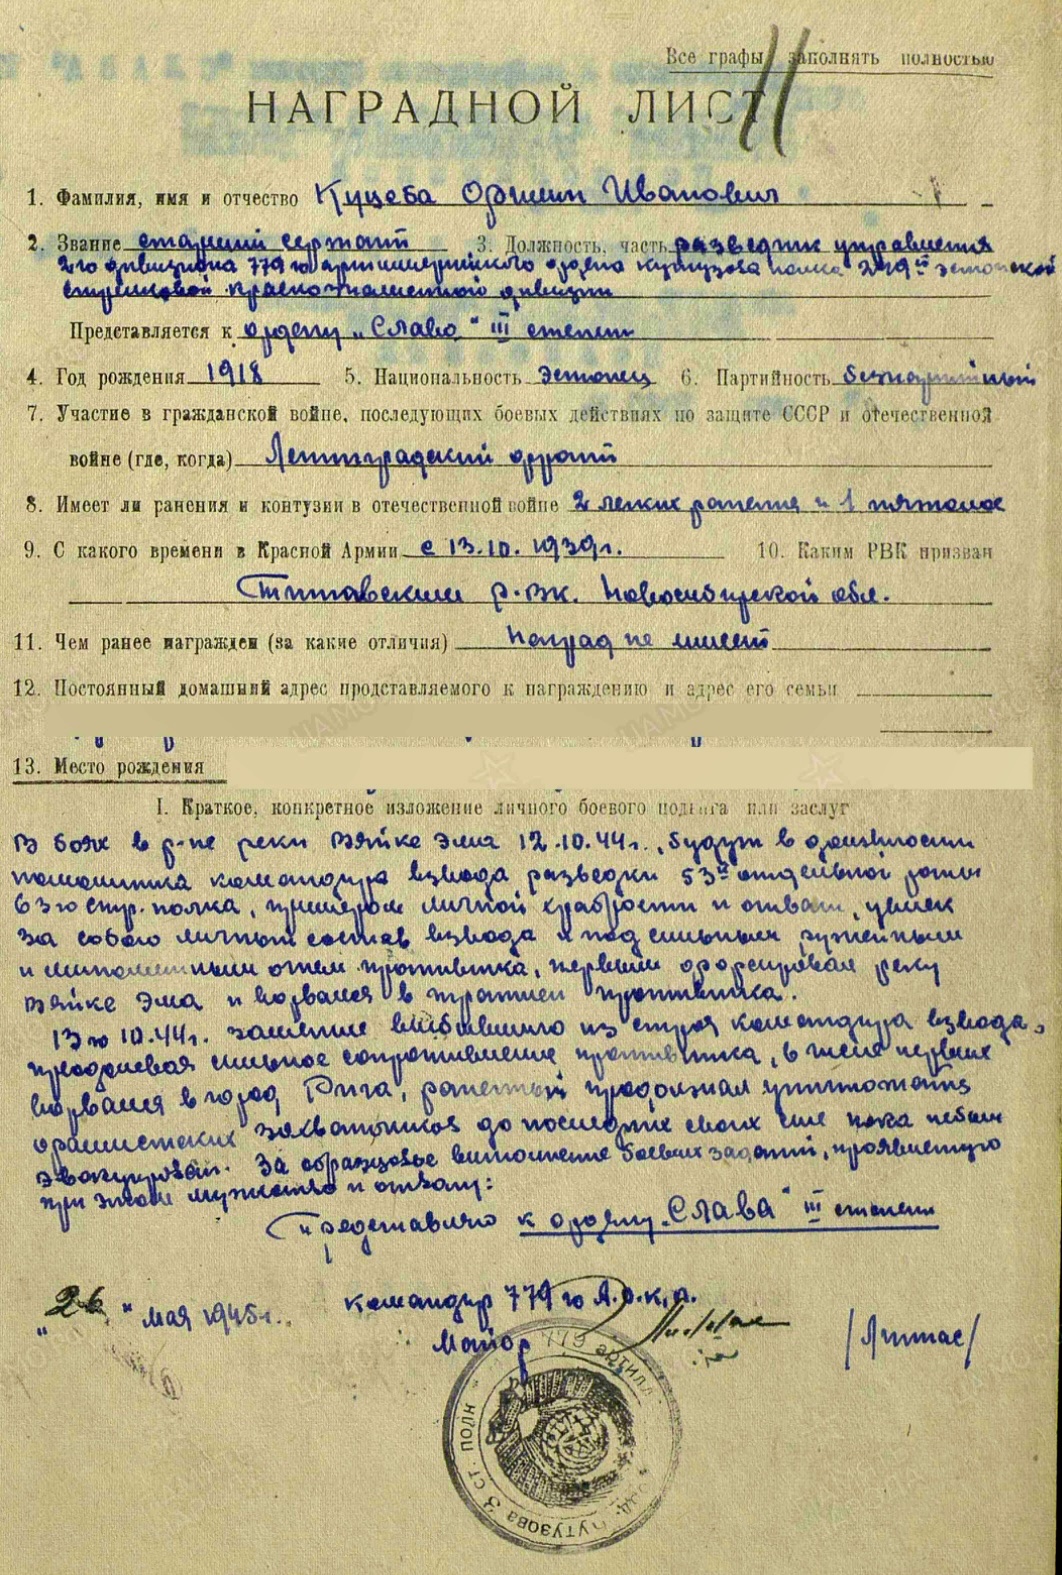 Все графы заполнять полностью
НАГРАДНОЙ ЛИСТ
1. Фамилия, имя и отчество Куцеба Ормин Иванович
2. Звание старший сержант 3. Должность, часть разведчик управления
2го дивизиона 779го артиллерийского ордена Кутузова полка 249й Эстонской
стрелковой краснознаменной дивизии
Представляется к ордену „Слава" III степени
4. Год рождения 1918 5. Национальность Эстонец 6. Партийность беспартийный
7. Участие в гражданской войне, последующих боевых действиях по защите СССР и отечественной
войне (где, когда) Ленинградский фронт
8. Имеет ли ранения и контузии в отечественной войне 2 легких ранения и 1 тяжелое
9. С какого времени в Красной Армии с 13.10.1939г. 10. Каким РВК призван
р.вк. Новосибирской обл.
11. Чем ранее награжден (за какие отличия) Наград не имеет
12. Постоянный домашний адрес продставляемого к награждению и адрес его семьи
13. Место рождения
I. Краткое, конкретное изложение личного боевого подвига или заслуг
В боях в р-не реки Вяйке Эма 12.10.44г., будучи в должности
помошника командира взвода разведки 53й отдельной роты
стр. полка, примером личной храбрости и отваги, увлек
за собою личный состав взвода и под сильным ружейным
и минометным огнем противника, первым форсировал реку
Вяйке Эма и ворвался в траншеи противника.
13го 10.44г. заменив выбывшего из строя командира взвода,
преодолевая сильное сопротивление противника, в числе первых
ворвался в город Рига, раненный продолжал уничтожать
фашистских захватчиков до последних своих сил пока небыл
эвакуирован. За образцовое выполнение боевых заданий, проявленную
при этом мужество и отвагу:
Представляю к ордену „СЛАВА" III степени
„26" мая 1945г. Командир 779го А.о.К.п.
Майор /Липпас/
779 артилл. орд. Кутузова 3 ст. полк